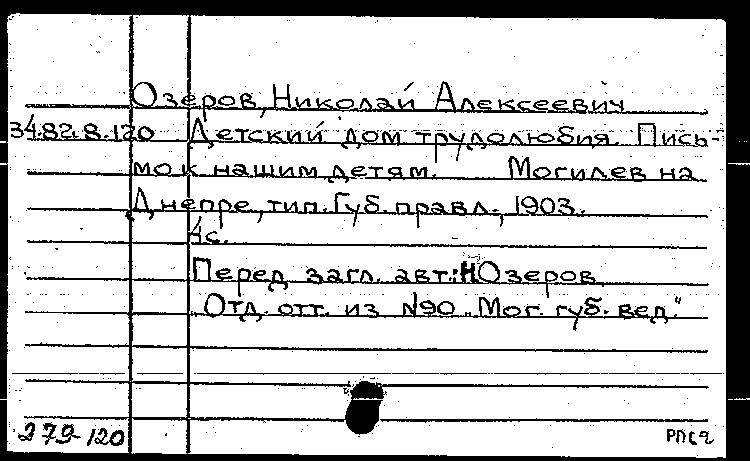 Озеров, Николай Алексеевич
34.82.8.120 Детский дом трудолюбия. Пись-
мо к нашим детям. Могилев на
Днепре, тип. Губ. правл., 1903.
4с.
Перед загл. авт.: Н Озеров
Отд. отт. из №90 „Мог. губ. вед."
279-120